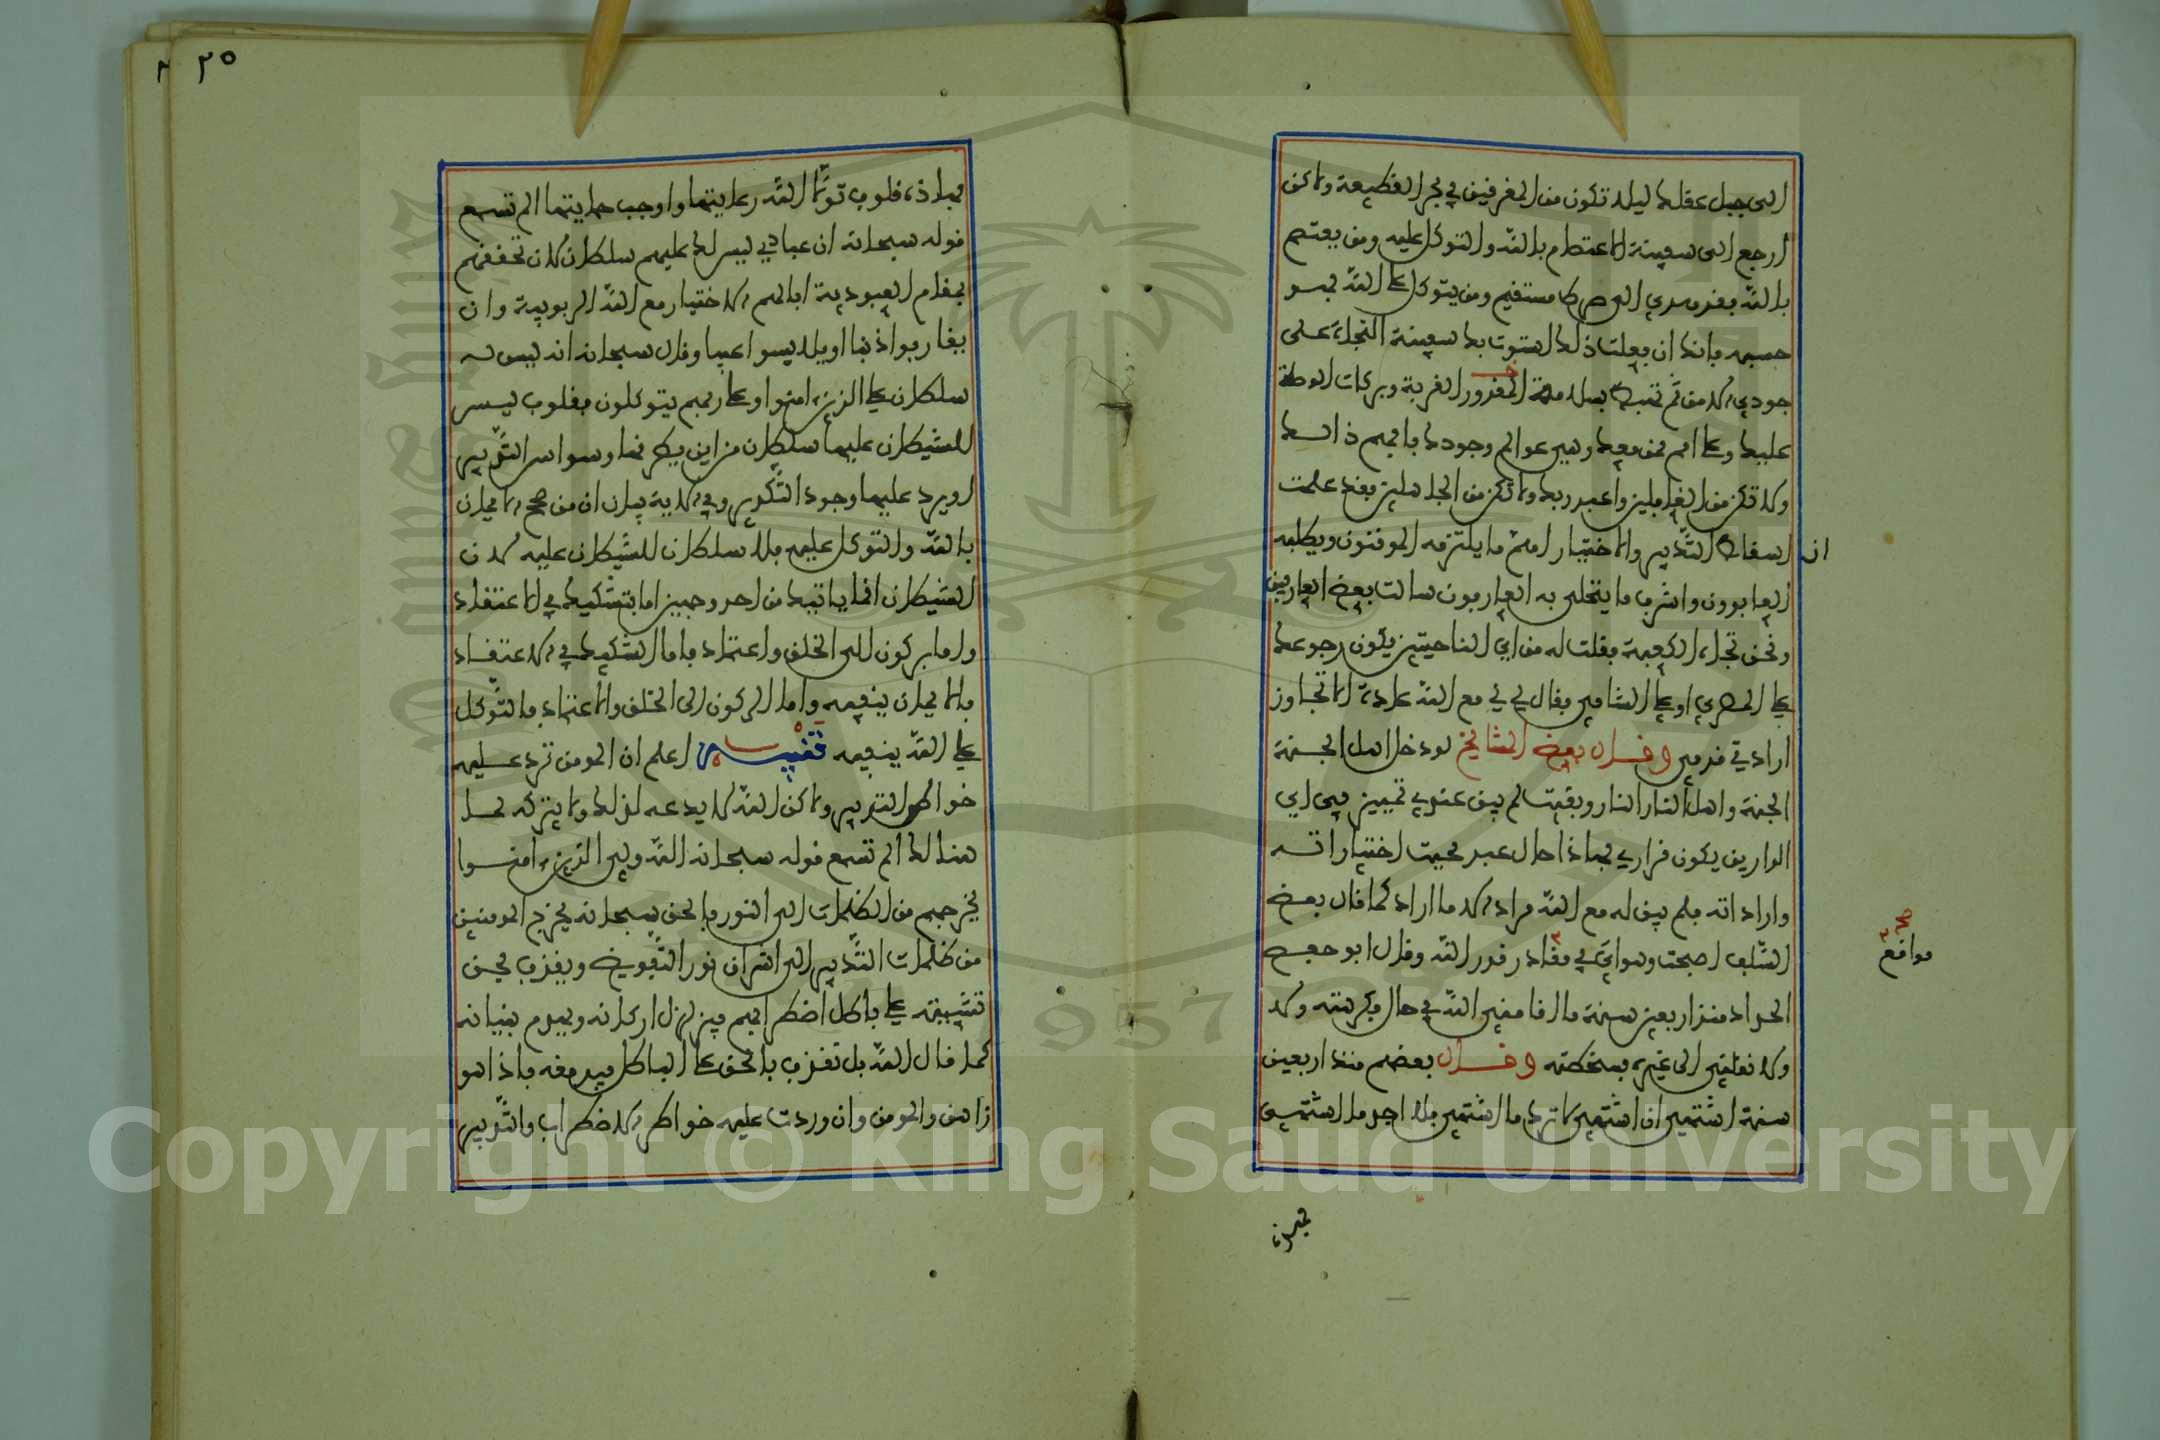 الى جبل عقلك ليلا تكون من المغرقين في بحر القطيعة ولاكن
ارجع الى سفينة الاعتصام بالله والتوكل عليه ومن يعتصم
بالله فقد هدي الى صراط مستقيم ومن يتوكل على الله فهو
حسبه فانك ان فعلت ذلك استوت بك سفينة النجاة على
جودي الامن ثم تهبط بسلامة القربة وبركات الوصلة
عليك وعلى امم ممن معك وهي عوالم وجودك فافهم ذالك
ولا تكن من الغافلين واعبد ربك ولا تكن من الجاهلين فقد علمت
ان اسقاط التدبير والاختيار اهم ما يلتزمه الموقنون ويطلبه
العابدون واشرف ما يتحلى به العارفون سالت بعض العارفين
ونحن تجاه الكعبة فقلت له من اي الناحيتين يكون رجوعك
على المصري او على الشامي فقال لي لي مع الله عادة الا تجاوز
ارادتي قدمي وقال بعض المشايخ لو دخل اهل الجنة
الجنة واهل النار النار وبقيت لم يبق عندي تمييز في اي
الدارين يكون قراري فهاذا حال عبد محيت اختياراته
واراداته فلم يبق له مع الله مراد الا ما اراد كما قال بعض
السلف اصبحت وهواي في مقادر قدر الله وقال ابو حفص
مواقع
صح
الحداد منذ اربعين سنة ما اقامني الله في حال فكرهته ولا
ولا نقلني الى غيره فسخطته وقال بعضهم منذ اربعين
سنة اشتهي ان اشتهي لاترك ما اشتهي فلا اجد ما اشتهي
فهذه
٢٥
فهاذه قلوب تولى الله رعايتها واوجب حمايتها الم تسمع
قوله سبحانه ان عبادي ليس لك عليهم سلطان لان تحققهم
بمقام العبودية ابا لهم الاختيار مع الله الربوبية وان
يقارفوا ذنبا او يلابسوا عيبا وقال سبحانه انه ليس له
سلطان على الذين امنوا وعلى ربهم يتوكلون فقلوب ليس
للشيطان عليها سلطان من اين يطرقها وسواس التدبير
او يرد عليها وجود التكدير وفي الاية بيان ان من صحح الايمان
بالله والتوكل عليه فلا سلطان للشيطان عليه لان
الشيطان انما ياتيك من احد وجهين اما بتشكيك في الاعتقاد
واما بركون الى الخلق واعتماد فاما التشكيك في الاعتقاد
فالايمان ينفيه واما الركون الى الخلق والاعتماد فالتوكل
على الله ينفيه تنبيه اعلم ان المومن ترد عليه
خواطر التدبير ولاكن الله لا يدعه لذلك ولا يتركه لما
هنالك الم تسمع قوله سبحانه الله ولي الذين امنوا
يخرجهم من الظلمات الى النور فالحق سبحانه يخرج المومنين
من ظلمات التدبير الى اشراق نور التفويض ويقذف بحق
تثبيته على باطل اضطرابهم فيزلزل اركانه ويهدم بنيانه
كما قال الله بل نقذف بالحق على الباطل فيدمغه فاذا هو
زاهق والمومن وان وردت عليه خواطر الاضطراب والتدبير